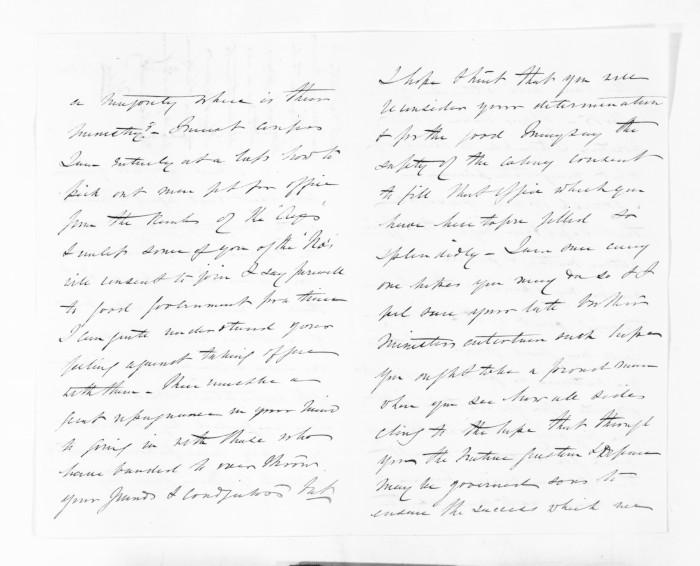 a majority where is their
Ministry? - I must confess
I am entirely at a loss how to
pick out men fit for office
from the ranks of the 'Ayes'
& unless some of you of the 'No's
will consent to join I say farewell
to good Government for a time
I can quite understand your
feeling against taking office
with them - There must be a
great repugnance in your mind
to going in with those who
have banded to over throw
your friends & coadjutors but
I hope & trust that you will
reconsider your determination
& for the good I may say the
safety of the colony consent
to fill that office which you
have heretofore filled so
splendidly - I am sure every
one hopes you may do so & I
feel sure your late brother
Ministers entertain such hopes
You ought to be a proud man
when you see how all sides
cling to the hope that through
you the Native question & Defence
may be governed so as to
ensure the success which we